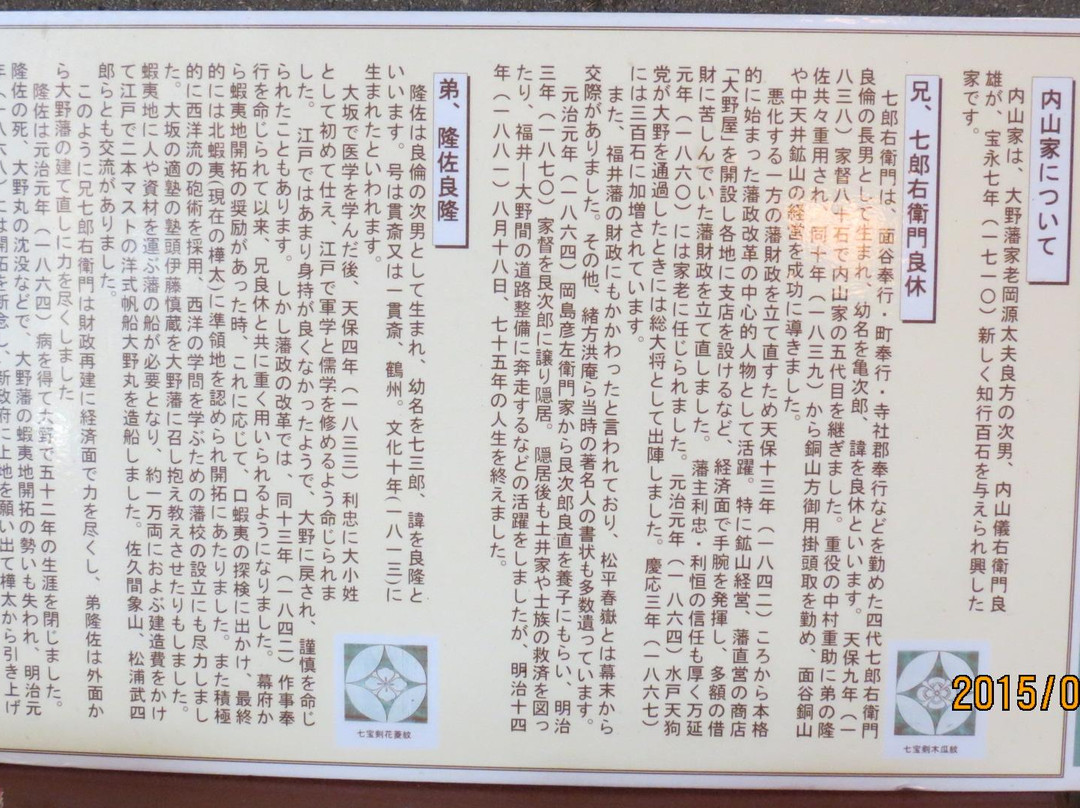 内山家について
内山家は、大野藩家老岡源太夫良方の次男、内山儀右衛門良
雄が、宝永七年（一七一〇）新しく知行百石を与えられ興した
家です。
兄、七郎右衛門良休
七郎右衛門は、面谷奉行・町奉行・寺社郡奉行などを勤めた四代七郎右衛門
良倫の長男として生まれ、幼名を亀次郎、諱を良休といいます。天保九年（一
八三八）家督八十石で内山家の五代目を継ぎました。重役の中村重助に弟の隆
佐共々重用され、同十年（一八三九）から銅山方御用掛頭取を勤め、面谷銅山
や中天井鉱山の経営を成功に導きました。
悪化する一方の藩財政を立て直すため天保十三年（一八四二）ころから本格
的に始まった藩政改革の中心的人物として活躍。特に鉱山経営、藩直営の商店
「大野屋」を開設し各地に支店を設けるなど、経済面で手腕を発揮し、多額の借
財に苦しんでいた藩財政を立て直しました。藩主利忠・利恒の信任も厚く万延
元年（一八六〇）には家老に任じられました。元治元年（一八六四）水戸天狗
党が大野を通過したときには総大将として出陣しました。慶応三年（一八六七）
には三百石に加増されています。
また、福井藩の財政にもかかわったと言われており、松平春嶽とは幕末から
交際がありました。その他、緒方洪庵ら当時の著名人の書状も多数遺っています。
元治元年（一八六四）岡島彦左衛門家から良次郎良直を養子にもらい、明治
三年（一八七〇）家督を良次郎に譲り隠居。隠居後も土井家や士族の救済を図っ
たり、福井―大野間の道路整備に奔走するなどの活躍をしましたが、明治十四
年（一八八一）八月十八日、七十五年の人生を終えました。
七宝剣木瓜紋
弟、隆佐良隆
隆佐は良倫の次男として生まれ、幼名を七三郎、諱を良隆と
いいます。号は貫斎又は一貫斎、鶴州。文化十年（一八一三）に
生まれたといわれます。
大坂で医学を学んだ後、天保四年（一八三三）利忠に大小姓
として初めて仕え、江戸で軍学と儒学を修めるよう命じられま
した。江戸ではあまり身持が良くなかったようで、大野に戻され、謹慎を命じ
られたこともあります。しかし藩政の改革では、同十三年（一八四二）作事奉
行を命じられて以来、兄良休と共に重く用いられるようになりました。幕府か
ら蝦夷地開拓の奨励があった時、これに応じて、口蝦夷の探検に出かけ、最終
的には北蝦夷（現在の樺太）に準領地を認められ開拓にあたりました。また積極
的に西洋流の砲術を採用、西洋の学問を学ぶための藩校の設立にも尽力しまし
た。大坂の適塾の塾頭伊藤慎蔵を大野藩に召し抱え教えさせたりもしました。
蝦夷地に人や資材を運ぶ藩の船が必要となり、約一万両におよぶ建造費をかけ
て江戸で二本マストの洋式帆船大野丸を造船しました。佐久間象山、松浦武四
郎らとも交流がありました。
このように兄七郎右衛門は財政再建に経済面で力を尽くし、弟隆佐は外面か
ら大野藩の建て直しに力を尽くしました
隆佐は元治元年（一八六四）病を得て大野で五十二年の生涯を閉じました。
隆佐の死、大野丸の沈没などで、大野藩の蝦夷地開拓の勢いも失われ、明治元
年（一八六八）には開拓を断念し、新政府に上地を願い出て樺太から引き上げ
七宝剣花菱紋
2015/0